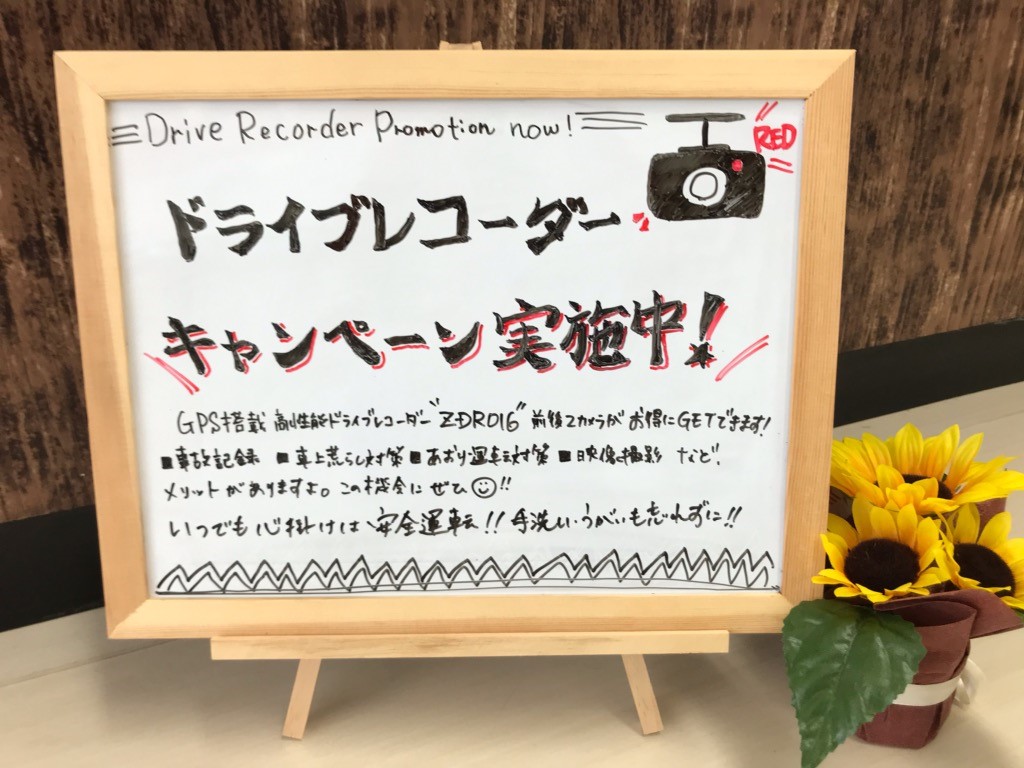 Drive Recorder Promotion now!
RED
ドライブレコーダー
キャンペーン実施中!
GPS搭載 高性能ドライブレコーダー"ZDR016"前後2カメラがお得にGETできます!
■事故記録 ■車上荒らし対策 ■あおり運転対策 ■映像撮影 など、
メリットがありますよ。この機会にぜひ☺!!
いつでも心掛けは安全運転!! 手洗い、うがいも忘れずに!!